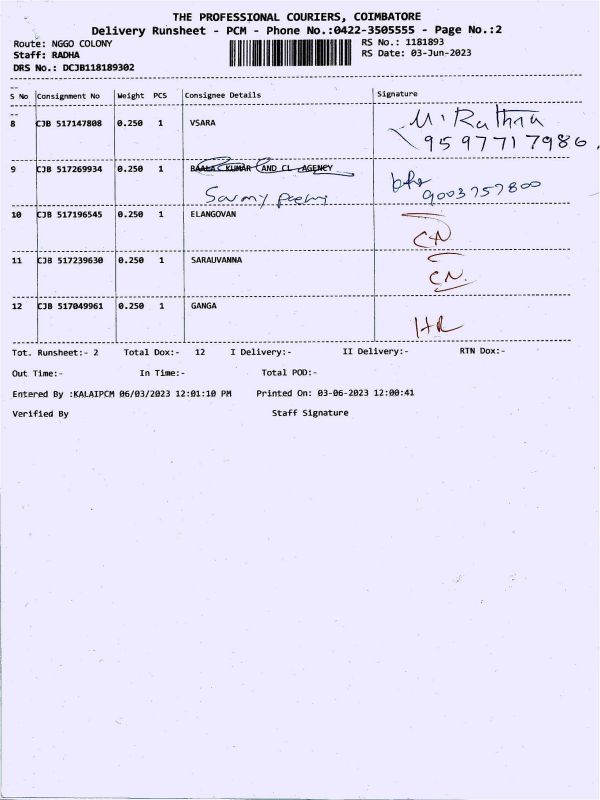 THE PROFESSIONAL COURIERS, COIMBATORE
Delivery Runsheet - PCM - Phone No.:0422-3505555 - Page No.:2
Route: NGGO COLONY RS No.: 1181893
Staff: RADHA RS Date: 03-Jun-2023
DRS No.: DCJB118189302
S No Consignment No Weight PCS Consignee Details Signature
8 CJB 517147808 0.250 1 VSARA M. Rathna
9597717986
9 CJB 517269934 0.250 1 BAALAC KUMAR AND CL .AGENCY
9003757800
10 CJB 517196545 0.250 1 ELANGOVAN CN
11 CJB 517239630 0.250 1 SARAUVANNA CN.
12 CJB 517049961 0.250 1 GANGA
Tot. Runsheet:- 2 Total Dox:- 12 I Delivery:- II Delivery:- RTN Dox:-
Out Time:- In Time:- Total POD:-
Entered By :KALAIPCM 06/03/2023 12:01:10 PM Printed On: 03-06-2023 12:00:41
Verified By Staff Signature